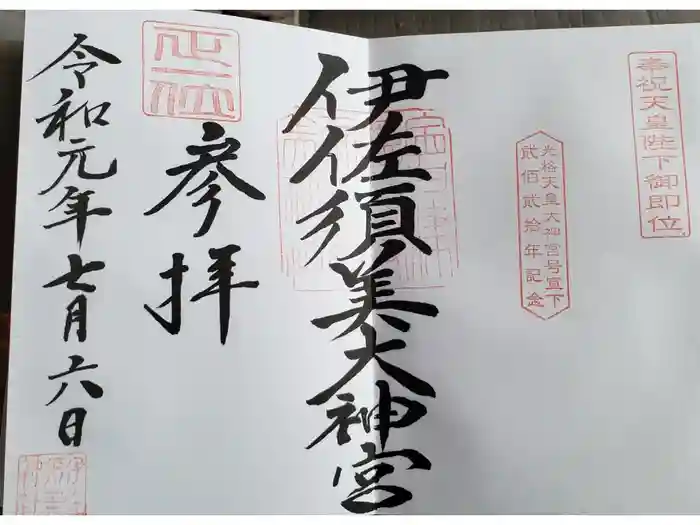 奉祝天皇陛下御即位
光格天皇大神宮号宣下
貳佰貳拾年記念
伊佐須美大神宮
正一位
参拝
令和元年七月六日